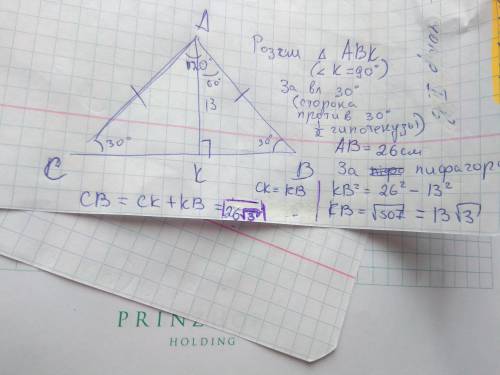 A
120°
60°
13
30°
30°
C
K
B
Розглн Δ ABK
(< K = 90°)
За вл 30°
(сторона
против 30°
1/2 гипотенузы)
AB = 26 см
За пифагор
CK = KB
KB² = 26² - 13²
KB = √507 = 13√3
CB = CK + KB = 26√3
PRINZ
HOLDING